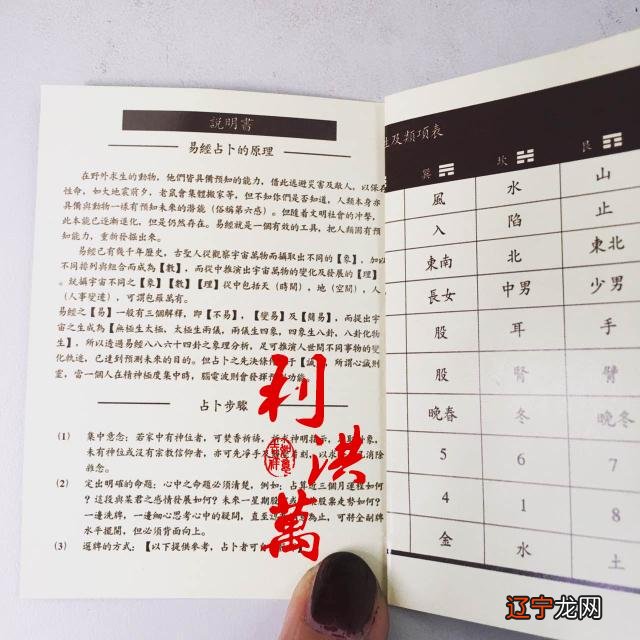 說明書
易經占卜的原理
在野外求生的動物，他們皆具備預知的能力，借此逃避災害及敵人，以保存
性命，如大地震前夕，老鼠會集體搬家等，但不知你們是否知道，人類本身亦
具備與動物一樣有預知未來的潛能（俗稱第六感）。但隨着文明社會的冲擊，
此本能已逐漸退化，但是仍然存在。易經就是一個有效的工具，把人類固有預
知能力，重新發掘出來。
易經已有幾千年歷史，古聖人從觀察宇宙萬物而攝取出不同的【象】，加以
不同排列與組合而成為【數】，而從中推演出宇宙萬物的變化及發展的【理】
。就攝宇宙不同之【象】【數】【理】從中包括天（時間），地（空間），人
（人事變遷），可謂包羅萬有。
易經之【易】一般有三個解釋，即【不易】，【變易】及【簡易】，而提出宇
宙之生成為【無極生太極，太極生兩儀，兩儀生四象，四象生八卦，八卦化物
生】，所以透過易經八八六十四卦之象理分析，足可推演人世間不同事物的變
化軌迹，已達到預測未來的目的。但占卜之先決條件 于【誠】，所謂心誠則
靈，當一個人在精神極度集中時，腦電波則會發揮 功能。
占卜步驟
(1) 集中意念：若家中有神位者，可焚香祈禱，祈求神明指示，
未有神位或沒有宗教信仰者，亦可先净手及 刻，以求 消除
雜念。
(2) 定出明確的命題：心中之命題必須清楚，例如：占算近三個月運程如何
？這段與某君之感情發展如何？未來一星期股 股票走勢如何？
一邊洗牌，一邊細心思考心中的疑問，直至 為止，可將全副牌
水平擺開，但必須背面向上。
(3) 選牌的方式：【以下提供參考，占卜者可
利洪萬
性及類項表
巽 ☴ 坎 ☵ 艮 ☶
風 水 山
入 陷 止
東南 北 東北
長女 中男 少男
股 耳 手
股 腎 臂
晚春 冬 晚冬
5 6 7
4 1 8
金 水 土
辽宁龙网